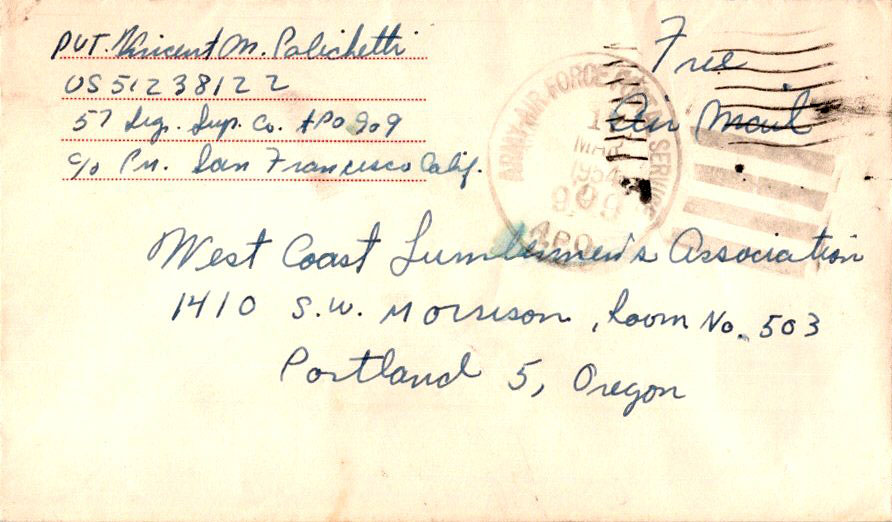 PVT. Vincent M. Palichetti
US 51238122
57 Sup. Co. APO 909
c/o Pm. San Francisco Calif.
Free
Air Mail
ARMY-AIR FORCE SERVICE
MAR
1954
909
A.P.O.
West Coast Lumbermen's Association
1410 S.W. Morrison, Room No. 503
Portland 5, Oregon